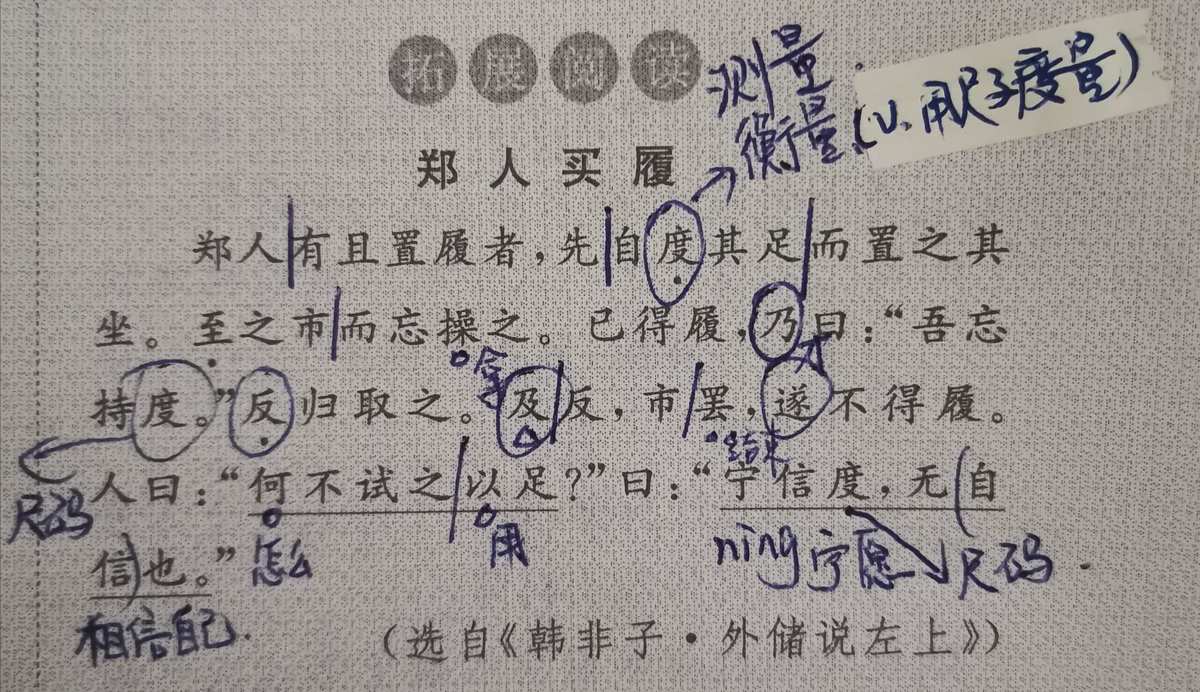 拓展阅读
测量
衡量
(v.用尺子度量)
郑人买履
郑人有且置履者,先自度其足而置之其
坐。至之市而忘操之。已得履,乃曰:“吾忘
拿
才
持度。”反归取之。及反,市罢,遂不得履。
结束
人曰:“何不试之以足?”曰:“宁信度,无自
尺码
怎么
用
ning宁愿
尺码.
信也。”
相信自己.
(选自《韩非子·外储说左上》)